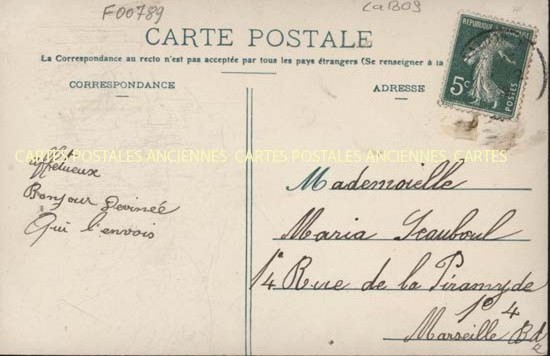 F00789
CaB09
CARTE POSTALE
La Correspondance au recto n'est pas acceptée par tous les pays étrangers (Se renseigner à la
CORRESPONDANCE
ADRESSE
REPUBLIQUE FRANÇAISE
5c
POSTES
CARTES POSTALES ANCIENNES CARTES POSTALES ANCIENNES CARTES
affectueux
Bonjour devinée
Qui l'envois
Mademoiselle
Maria
14 Rue de la Piramyde
14
Marseille